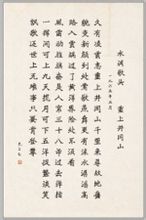 水調歌頭 重上井岡山
一九六五年五月
久有凌雲志重上井岡山千里來尋故地舊
貌變新顏到處鶯歌燕舞更有潺潺流水高
路入雲端過了黃洋界險處不須看
風雷動旌旗奮是人寰三十八年過去彈指
一揮間可上九天攬月可下五洋捉鱉談笑
凱歌還世上無難事只要肯登攀